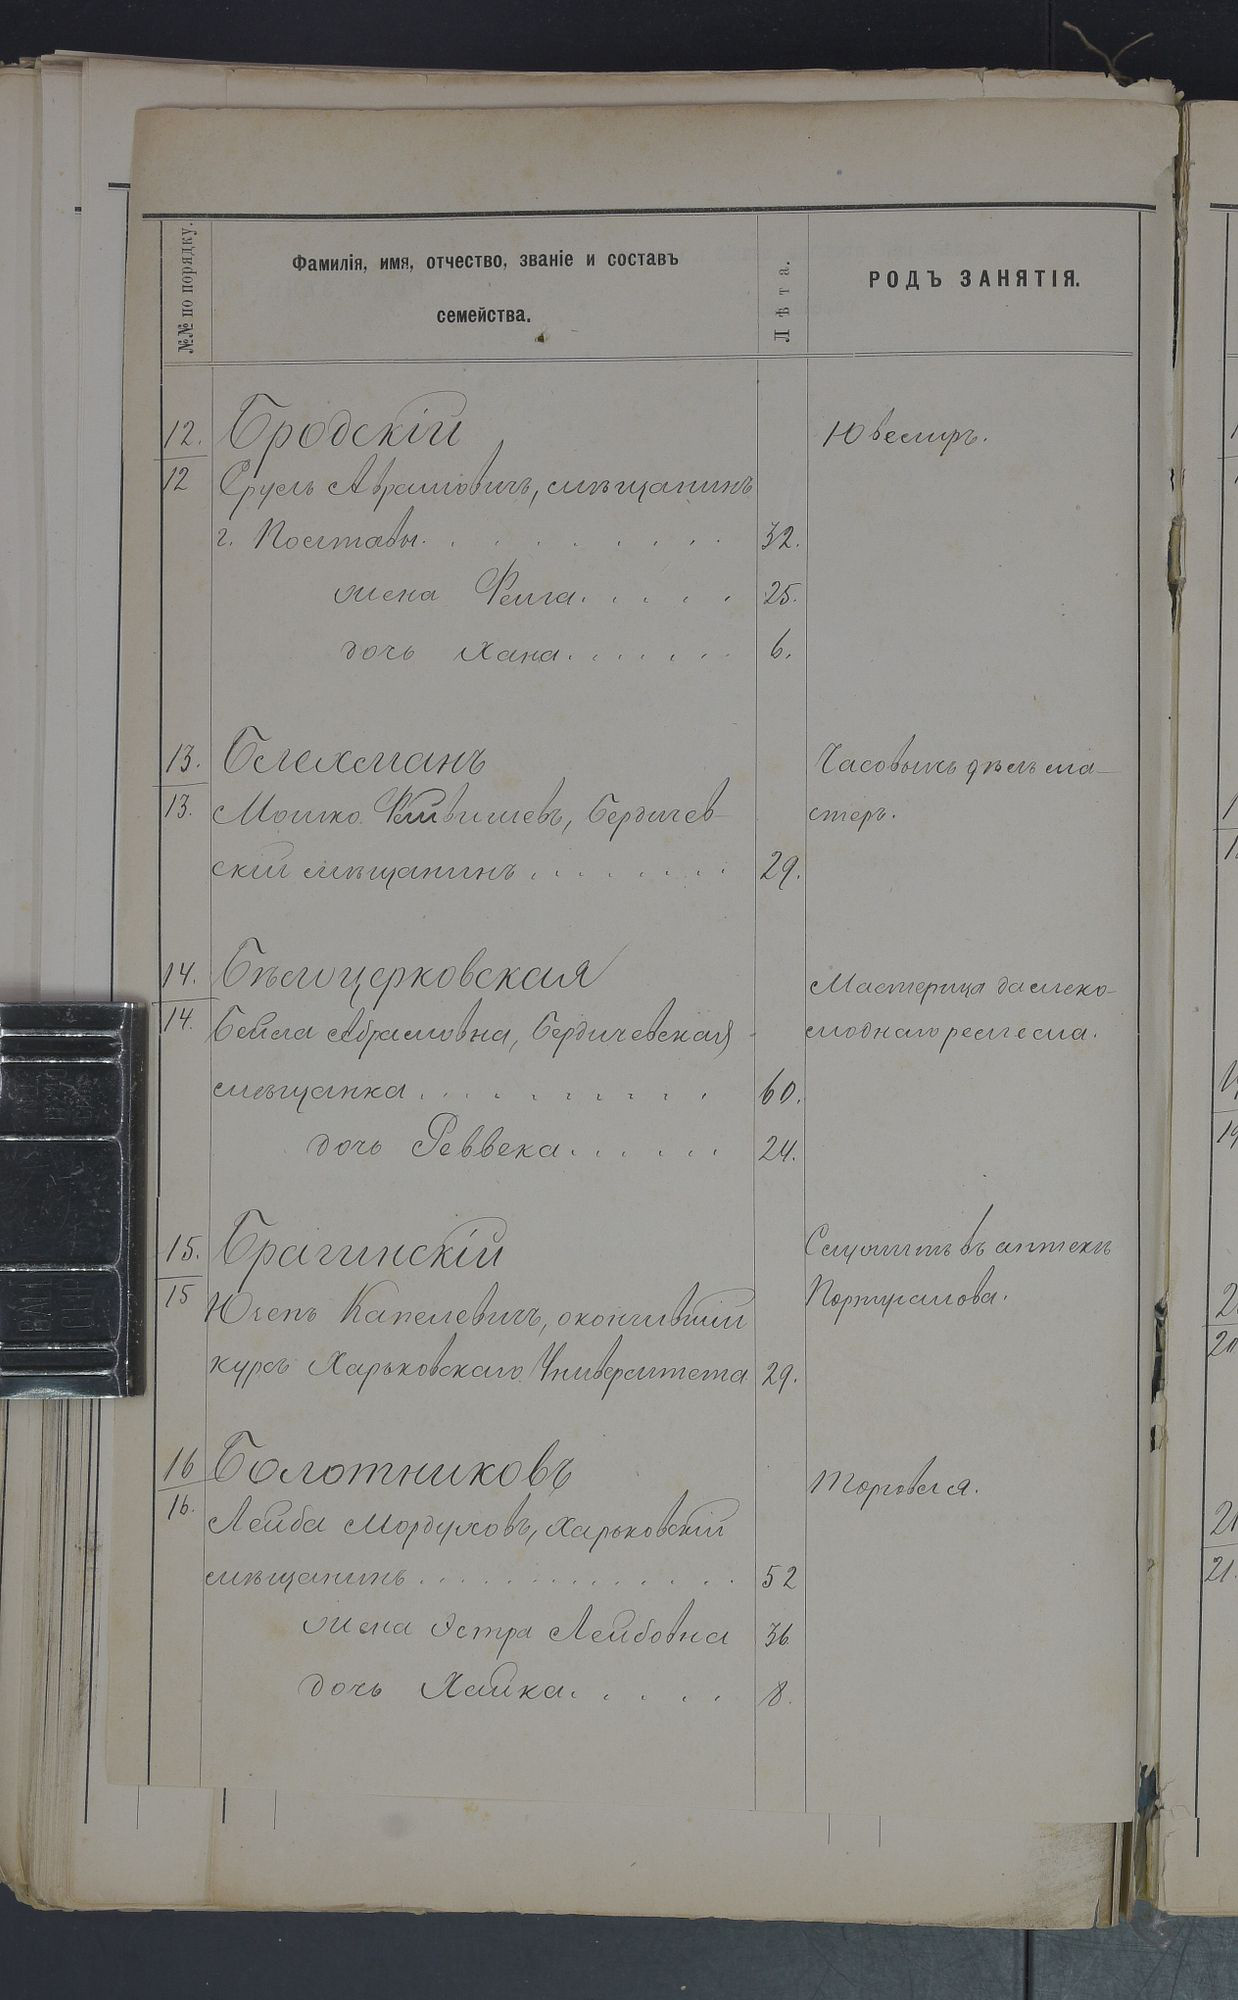 №№ по порядку.
Фамилія, имя, отчество, званіе и составъ
семейства.
Лѣта.
РОДЪ ЗАНЯТІЯ.
12. Бродскій Ювелиръ.
12 Сруль Аврамовичъ, мѣщанинъ
г. Поставы. 32.
жена Фейга. 25.
дочь Хана. 6.
13. Блехманъ Часовыхъ дѣлъ ма-
13. Мошко Файвишевъ, Бердичев- стеръ.
скій мѣщанинъ 29.
14. Бѣлоцерковская Мастерица дамско-
14. Бейла Абрамовна, Бердичевская моднаго ремесла.
мѣщанка 60.
дочь Реввека. 24.
15. Брагинскій Служитъ въ аптекѣ
15 Капелевичъ, окончившій Португалова.
курсъ Харьковскаго Университета 29.
16 Болотниковъ Торговля.
16. Лейба Мордуховъ, Харьковскій
мѣщанинъ 52
жена Эстра Лейбовна 36
дочь Хайка. 8.